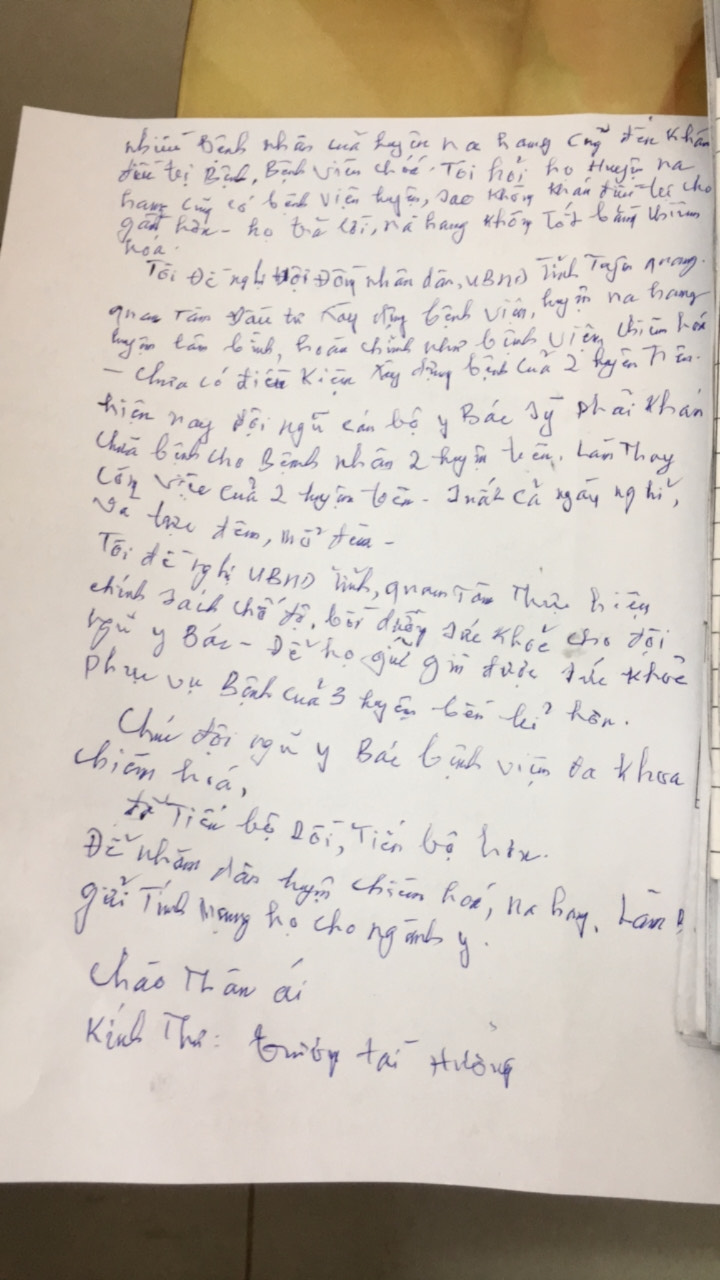 nhiều Bệnh nhân của huyện na hang cũng đến Khám
điều trị Bệnh, Bệnh viên Tôi hỏi họ Huyện na
hang cũng có bệnh viện huyện, sao không khám điều trị cho
gần hơn - họ trả lời, na hang không tốt bằng chiêm
hoá.
Tôi Đề nghị Hội Đồng nhân dân, UBND Tỉnh Tuyên quang.
quan Tâm Đầu tư Xây dựng bệnh viên, huyện na hang
huyện lâm bình, hoàn chỉnh như bệnh viện chiêm hoá
- Chưa có điều Kiện Xây dựng bệnh của 2 huyện Trên.
hiện nay đội ngũ cán bộ y Bác sỹ phải Khám
chữa bệnh cho Bệnh nhân 2 huyện trên. Làm Thay
công việc của 2 huyện trên - cả ngày nghỉ,
và trực đêm, mổ đêm -
Tôi đề nghị UBND Tỉnh, quan Tâm Thực hiện
chính sách chế độ, bồi dưỡng sức khoẻ cho đội
ngũ y Bác - Để họ giữ gìn được sức khoẻ
phục vụ Bệnh của 3 huyện bền bỉ hơn.
Chúc đội ngũ y Bác bệnh viện đa khoa
chiêm hoá,
Tiến bộ rồi, Tiến bộ hơn.
Để nhâm dân huyện chiêm hoá, na hang, Lâm B
gửi Tính mạng họ cho ngành y.
Chào Thân ái
Kính Thư: tài Hưởng